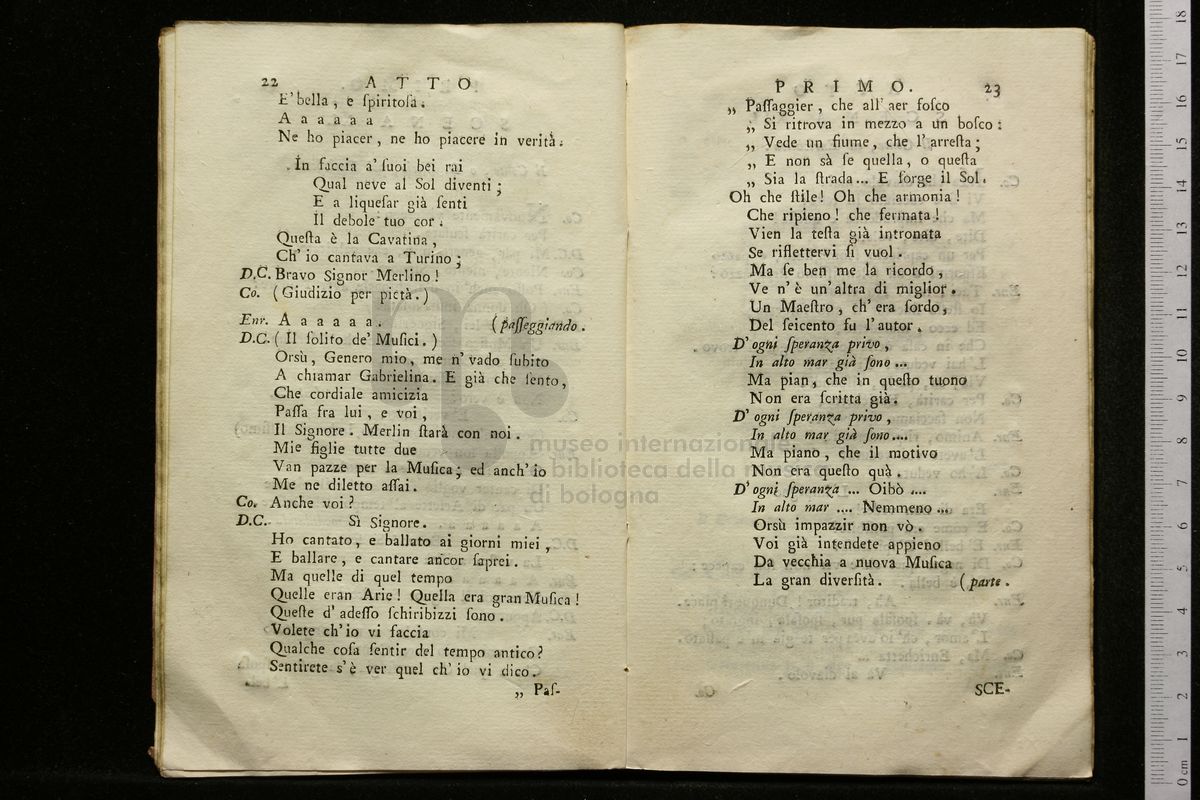 22 ATTO
E' bella, e ſpiritoſa.
A a a a a a
Ne ho piacer, ne ho piacere in verità.
In faccia a' ſuoi bei rai
Qual neve al Sol diventi;
E a liquefar già ſenti
Il debole tuo cor.
Queſta è la Cavatina,
Ch' io cantava a Turino;
D.C. Bravo Signor Merlino!
Co. (Giudizio per pietà.)
Enr. A a a a a a. (paſſeggiando.
D.C. (Il ſolito de' Muſici.)
Orsù, Genero mio, me n' vado ſubito
A chiamar Gabrielina. E già che ſento,
Che cordiale amicizia
Paſſa fra lui, e voi,
Il Signore. Merlin ſtarà con noi.
Mie figlie tutte due
Van pazze per la Muſica; ed anch' io
Me ne diletto aſſai.
Co. Anche voi?
D.C. Sì Signore.
Ho cantato, e ballato ai giorni miei,
E ballare, e cantare ancor ſaprei.
Ma quelle di quel tempo
Quelle eran Arie! Quella era gran Muſica!
Queſte d' adeſſo ſchiribizzi ſono.
Volete ch' io vi faccia
Qualche coſa ſentir del tempo antico?
Sentirete s' è ver quel ch' io vi dico.
„ Paſ-
PRIMO. 23
„ Paſſaggier, che all' aer foſco
„ Si ritrova in mezzo a un boſco:
„ Vede un fiume, che l' arreſta;
„ E non sà ſe quella, o queſta
„ Sia la ſtrada... E ſorge il Sol.
Oh che ſtile! Oh che armonia!
Che ripieno! che fermata!
Vien la teſta già intronata
Se riflettervi ſi vuol.
Ma ſe ben me la ricordo,
Ve n' è un' altra di miglior.
Un Maeſtro, ch' era ſordo,
Del ſeicento fu l' autor.
D' ogni ſperanza privo,
In alto mar già ſono ...
Ma pian, che in queſto tuono
Non era ſcritta già.
D' ogni ſperanza privo,
In alto mar già ſono....
Ma piano, che il motivo
Non era queſto quà.
D' ogni ſperanza ... Oibò ....
In alto mar .... Nemmeno ...
Orsù impazzir non vò.
Voi già intendete appieno
Da vecchia a nuova Muſica
La gran diverſità. (parte.
SCE-
museo internazionale
e biblioteca della musica
di bologna
0 cm 1 2 3 4 5 6 7 8 9 10 11 12 13 14 15 16 17 18